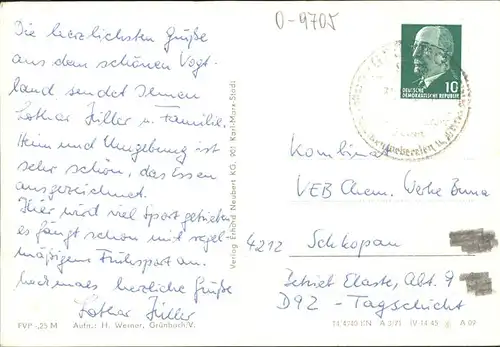 0-9705
Die herzlichsten Grüße
aus dem schönen Vogt-
land sendet Ihnen
Lothar Züller u. Familie.
Heim und Umgebung ist
sehr schön, das Essen
ausgezeichnet.
Hier wird viel Sport getrieben
es fängt schon mit regel-
mäßigem Frühsport an.
Nochmals herzliche Grüße
Lothar Züller
FVP -,25 M Aufn.: H. Werner, Grünbach/V.
Verlag Erhard Neubert KG, 901 Karl-Marx-Stadt
10
DEUTSCHE
DEMOKRATISCHE REPUBLIK
Kombinat
VEB Chem. Werke Buna
4212 Schkopau
Betrieb Elaste, Abt. 9
D92 - Tagschicht
A 2/71 IV-14-45 A 09